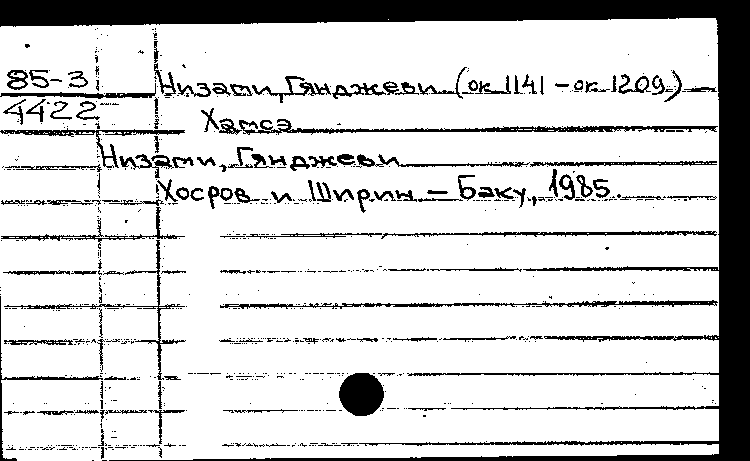 85-3 Низами, Гянджеви (ок 1141 – ок 1209) –
4422 Хамсэ
Низами, Гянджеви
Хосров и Ширин – Баку, 1985.